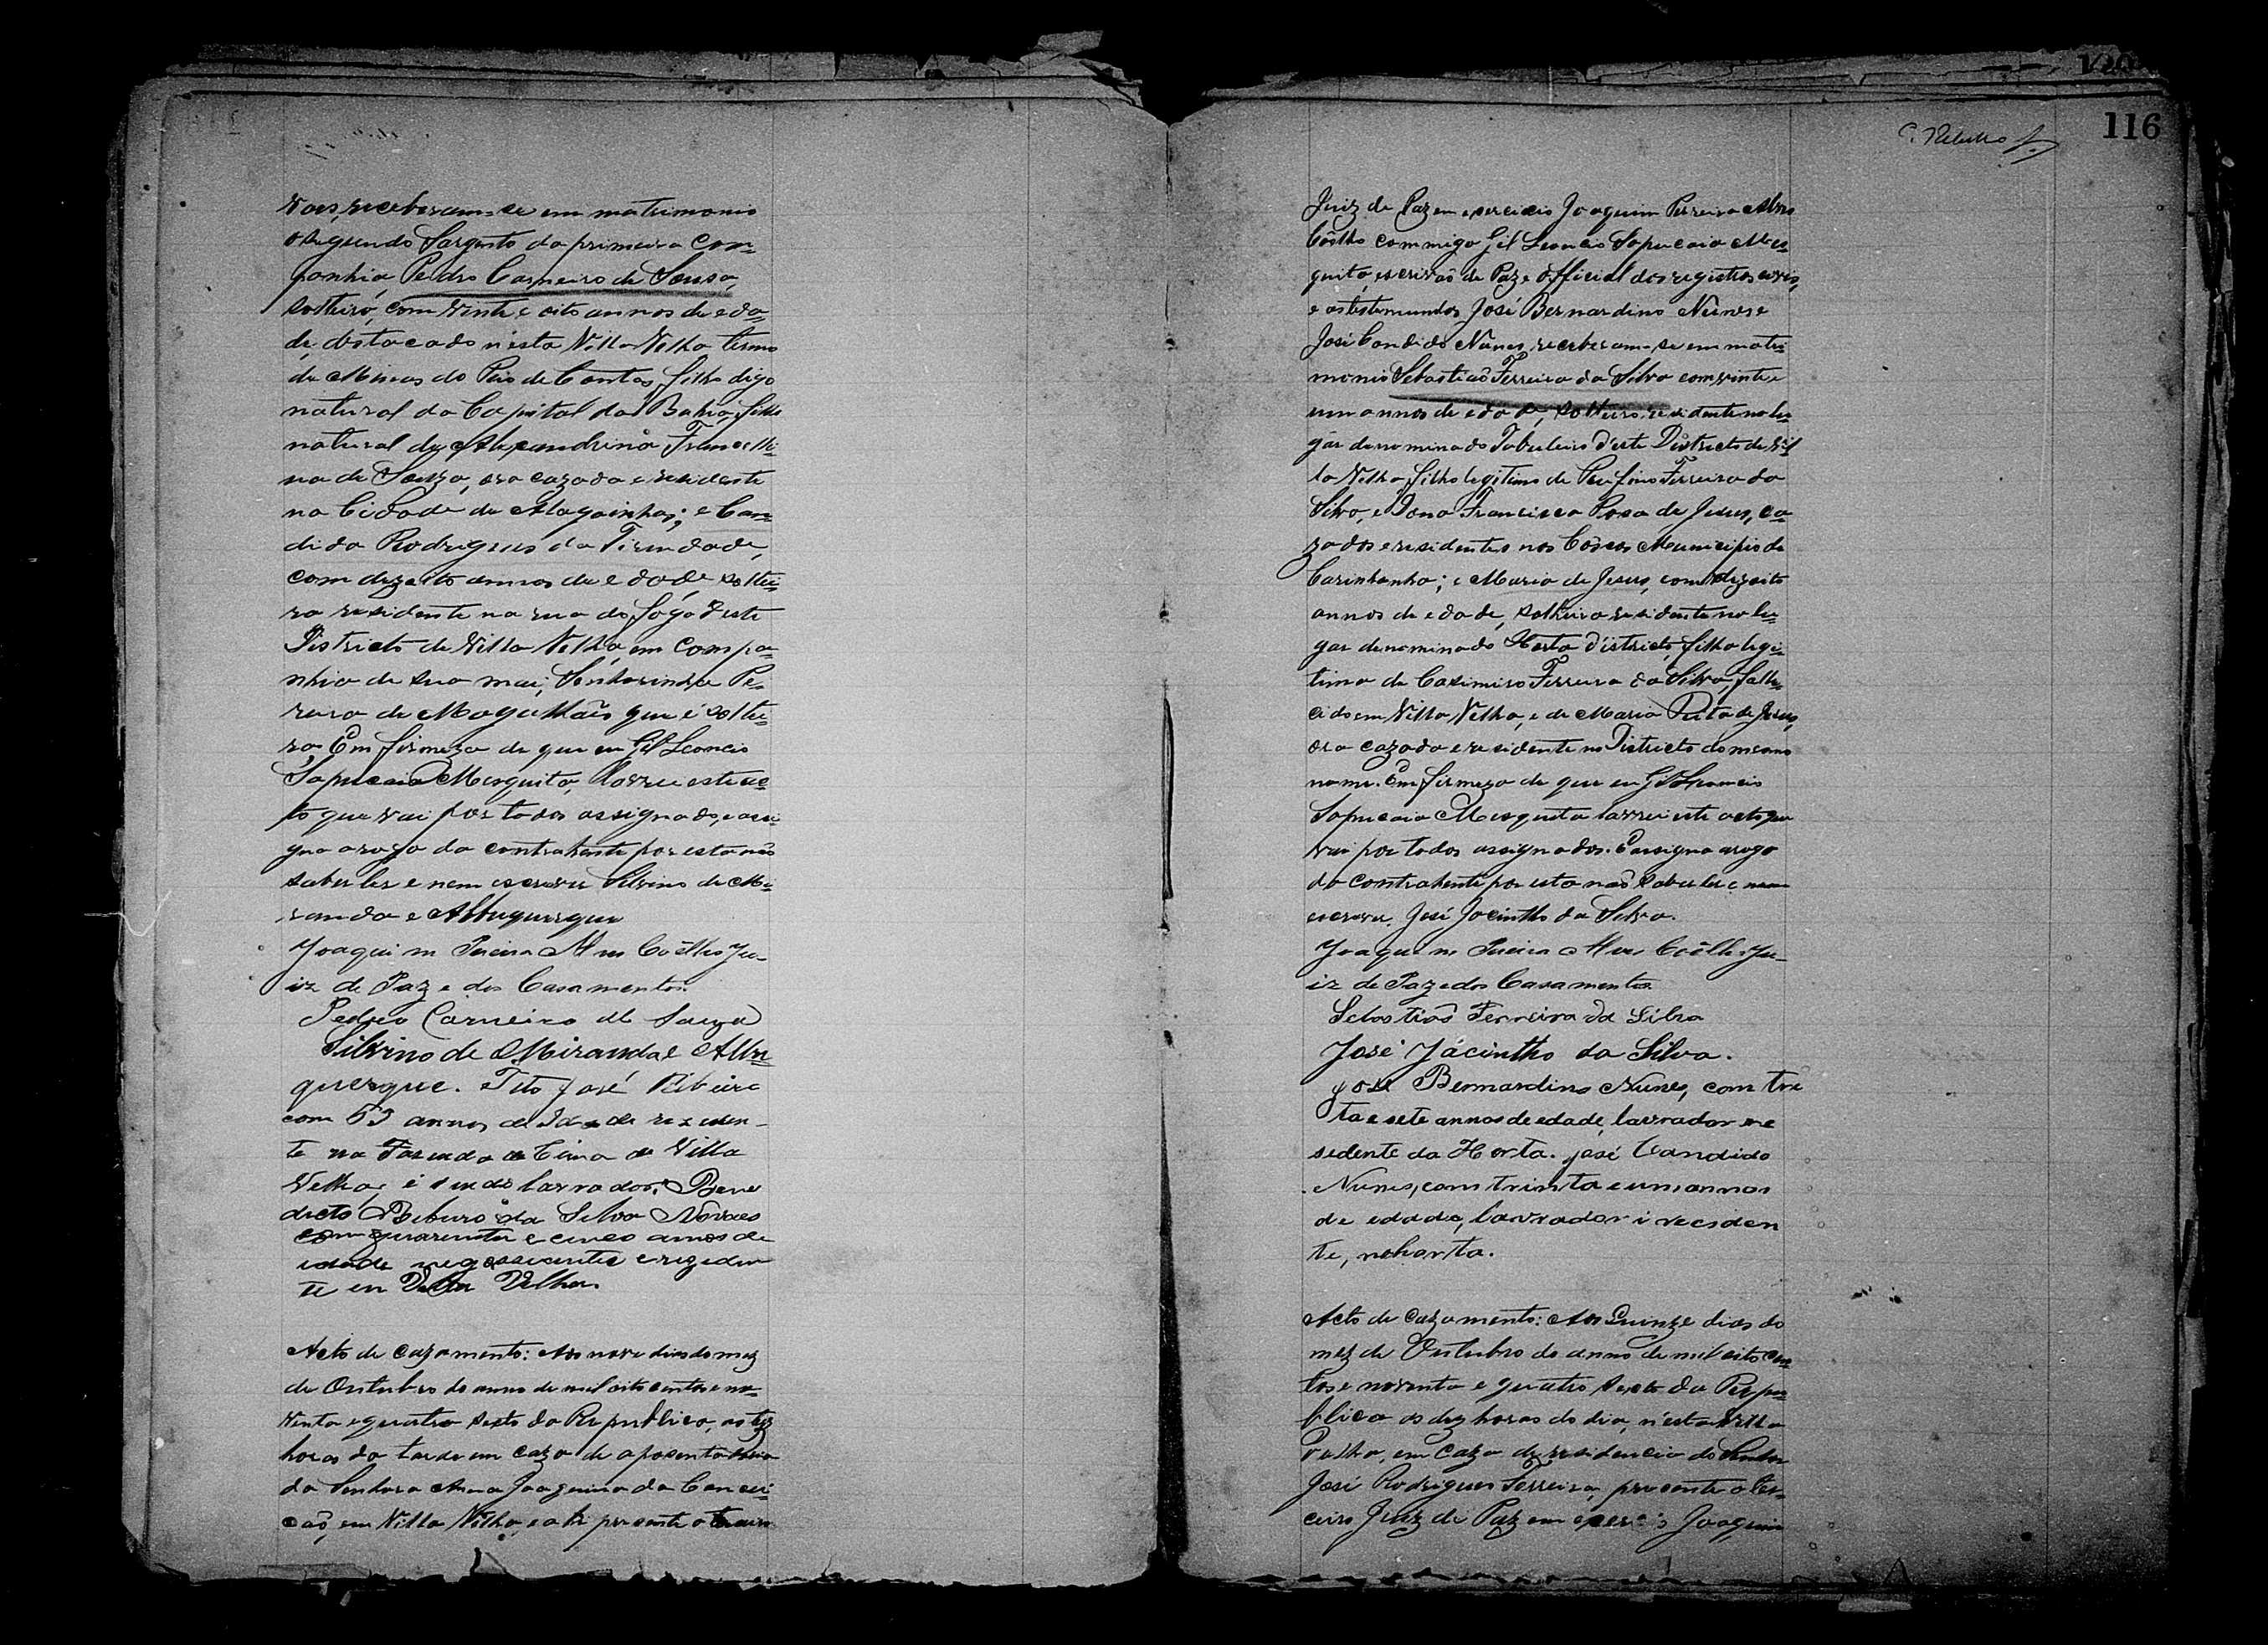 vaes, receberam-se em matrimonio
o segundo Sargento da primeira com-
panhia, Pedro Carneiro de Sousa,
solteiro, com vinte e oito annos de eda-
de, destacado n'esta Villa Velha termo
de Minas do Rio de Contas, filho digo
natural da Capital da Bahia, filho
natural de Alexandrina Francelli-
na de Souza, ora cazada e residente
na Cidade de Alagoinhas; e Can-
dida Rodrigues da Trindade,
com dezoito annos de edade soltei-
ra residente na rua do fogo d'este
Districto de Villa Velha, em compa-
nhia de sua mai, Senhorinha Pe-
reira de Magalhães que é soltei-
ra. Em firmeza de que eu Gil Leoncio
Sapucaia Mesquita, lavrei este ac-
to que vai por todos assignado, e assi-
gna arogo da contrahente por esta não
saber ler e nem escrever Silvino de Mi-
randa e Albuquerque
Joaquim Pereira Alves Coêlho Ju-
iz de Paz e dos Casamentos.
Pedro Carneiro de Souza
Silvino de Miranda e Albu-
querque. Tito José Ribeiro
com 53 annos de Idade rezeden-
te na Fazenda de Cima de Villa
Velha, é sendo lavrador. Bene
dicto Ribeiro da Silva Novaes
com quarenta e cinco annos de
idade negossiante e rezeden
te en Villa Velha.
Acto de cazamento: Aos nove dias do mez
de Outubro do anno de mil oito centos e no-
venta e quatro sexto da Republica, as tez
horas da tarde em caza de aposentadoria
da Senhora Anna Joaquina da Concei-
cão, em Villa Velha, e ahi presente o terceiro
116
Juiz de Paz em exercicio Joaquim Pereira Alves
Coêlho commigo Gil Leoncio Sapucaia Mes-
quita, escrivão de Paz e official dos registros civis,
e as testemunhas José Bernardino Nunes e
José Candido Nunes, receberam-se em matri-
monio Sebastião Ferreira da Silva com vinte e
um annos de edade, solteiro, residente no lu-
gar denominado Taboleiro d'este Districto de Vil
la Velha, filho legitimo de Rufino Ferreira da
Silva, e Dona Francisca Rosa de Jesus, ca-
zados e residentes nos Côcos Municipio de
Carinhanha; e Maria de Jesus, com dezoito
annos de edade, solteira residente no lu-
gar denominado Horta d'istricto, filha legi-
tima de Casimiro Ferreira da Silva, falle-
cido em Villa Velha, e de Maria Rita de Jesus,
ora cazada e residente no Districto do mesmo
nome. Em firmeza de que eu Gil Leoncio
Sapucaia Mesquita lavrei este acto que
vai por todos assignados. E assigna arogo
da contrahente por esta não saber ler e nem
escrever José Jacintho da Silva.
Joaquim Pereira Alves Coêlho Ju-
iz de Paz e dos Casamentos
Sebastião Ferreira da Silva
José Jacintho da Silva.
José Bernardino Nunes, com trin
ta e sete annos de edade, lavrador e re
sedente da Horta. José Candido
Nunes, com trinta e um annos
de edade, lavrador i reciden
te, nahorta.
Acto de cazamento: Aos Quinze dias do
mez de Outubro do anno de mil oito cen-
tos e noventa e quatro sexto da Repu-
blica as dez horas do dia, n'esta Villa
Velha, em caza de residencia do Senhor
José Rodrigues Ferreira, presente o ter-
ceiro Juiz de Paz em exercicio Joaquim